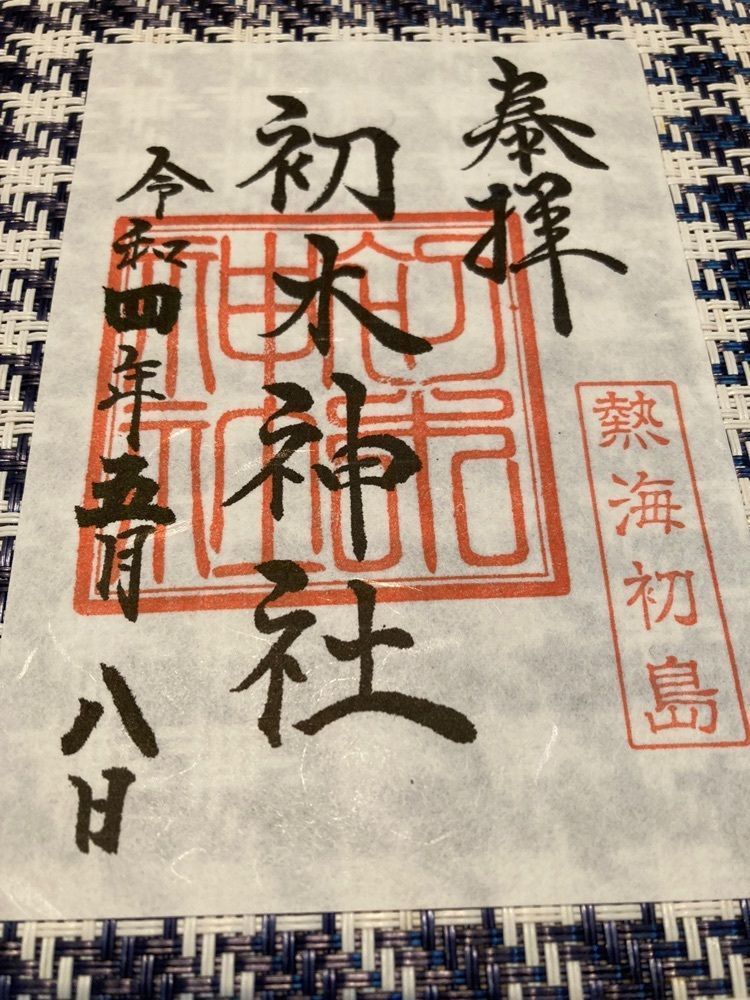 奉拝
熱海初島
初木神社
初木神社
令和四年五月八日